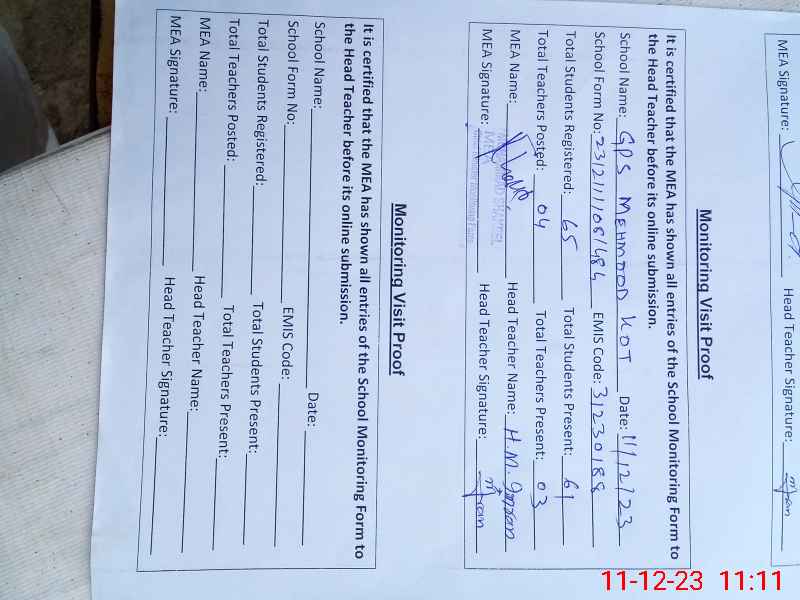 MEA Signature: Head Teacher Signature:
Monitoring Visit Proof
It is certified that the MEA has shown all entries of the School Monitoring Form to
the Head Teacher before its online submission.
School Name: GPS MEHMOOD KOT Date: 11/12/23
School Form No: EMIS Code: 31230188
Total Students Registered: 65 Total Students Present: 61
Total Teachers Posted: 04 Total Teachers Present: 03
MEA Name: Head Teacher Name: H.M. Imran
MEA Signature: Head Teacher Signature: Imran
Monitoring Visit Proof
It is certified that the MEA has shown all entries of the School Monitoring Form to
the Head Teacher before its online submission.
School Name: Date:
School Form No: EMIS Code:
Total Students Registered: Total Students Present:
Total Teachers Posted: Total Teachers Present:
MEA Name: Head Teacher Name:
MEA Signature: Head Teacher Signature:
11-12-23 11:11